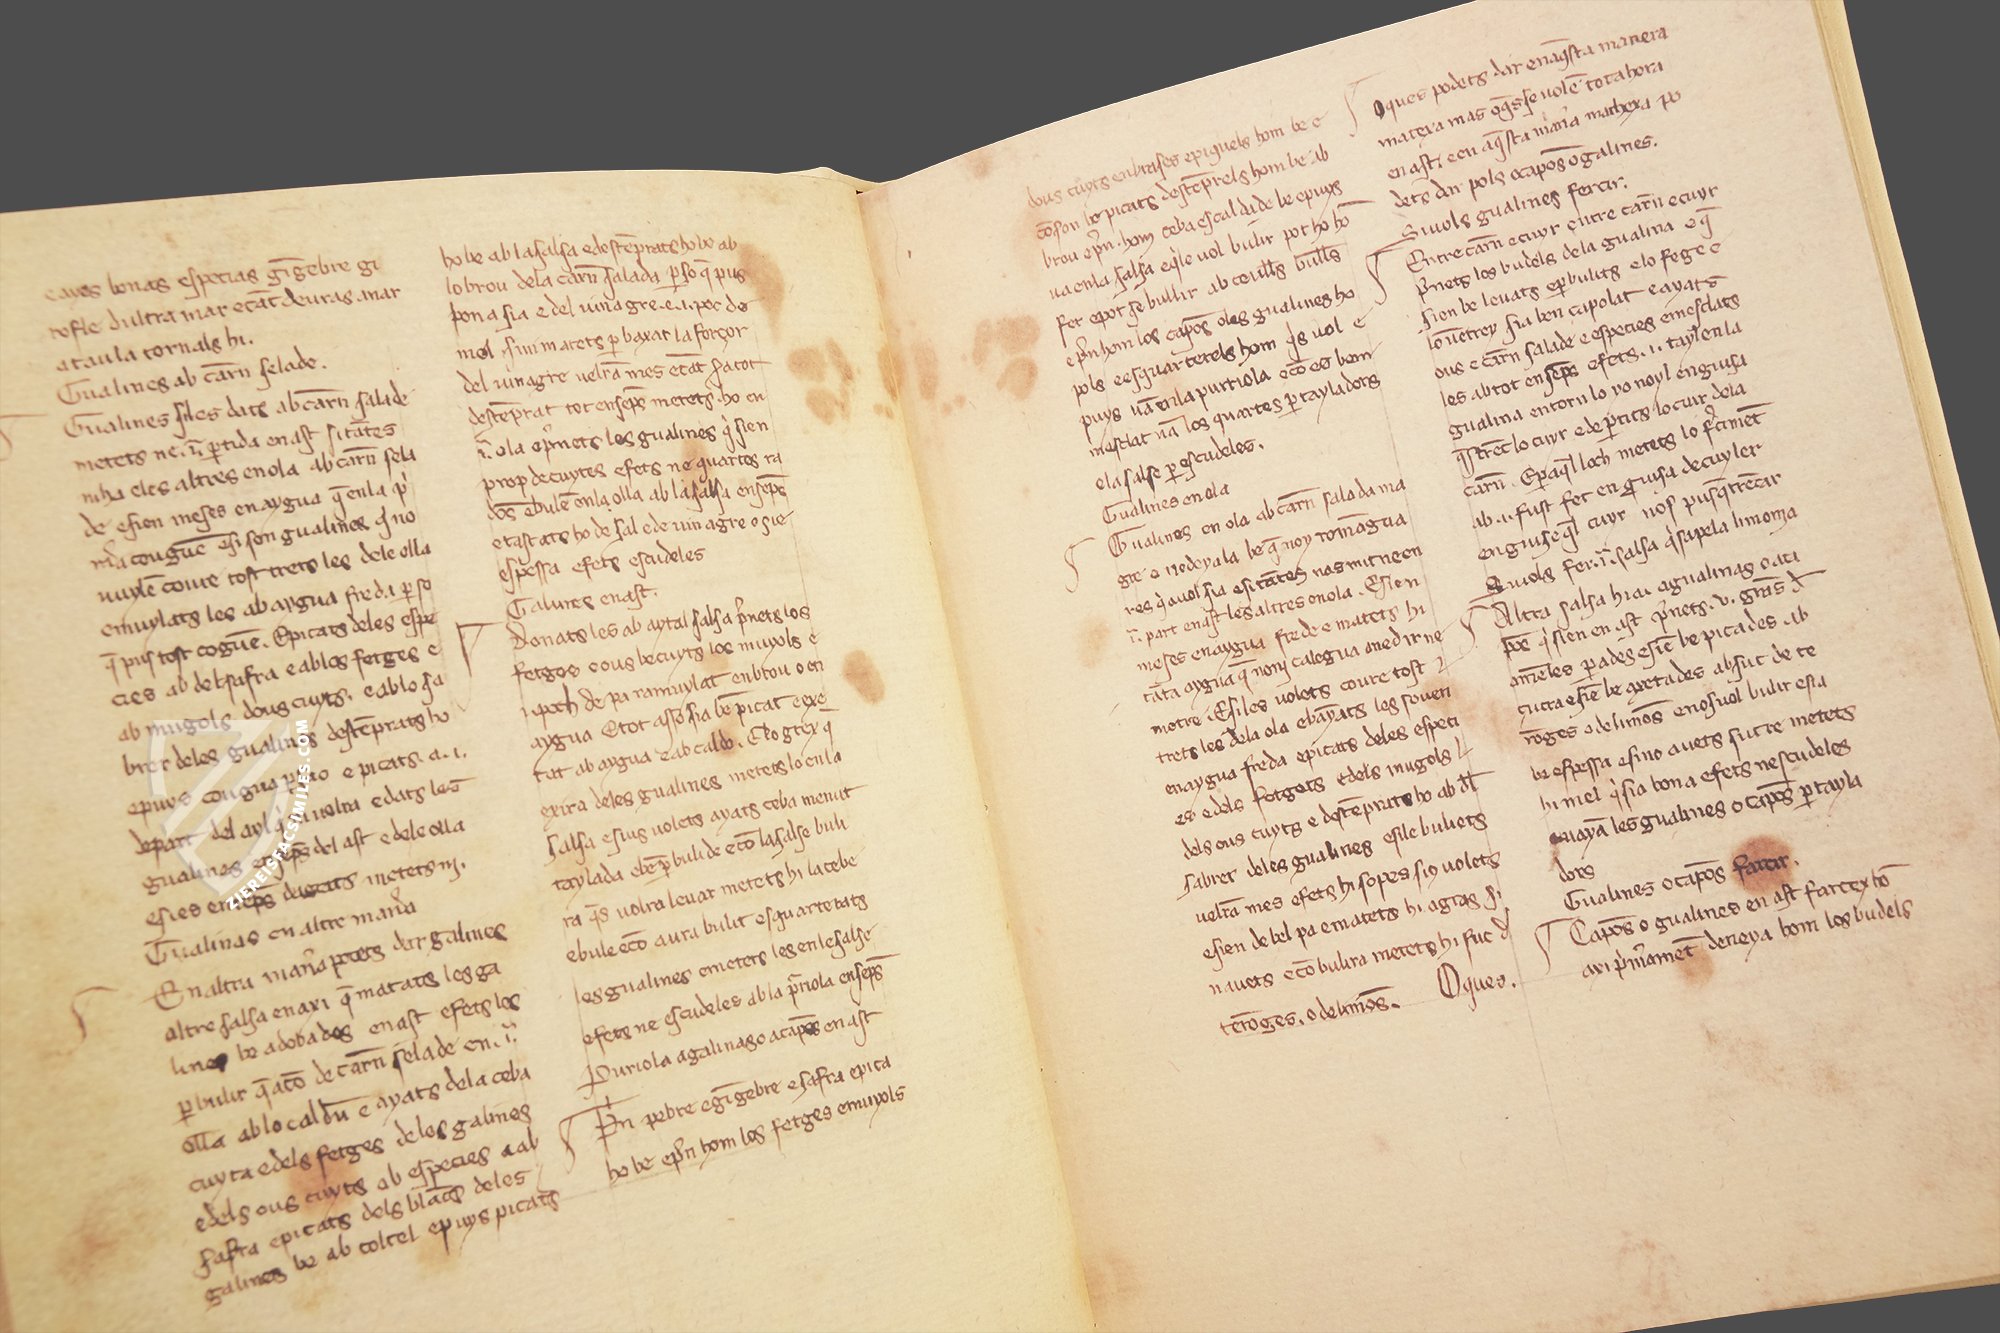 eaves bonas especias gīgēbre gi
rofle dultra mar e cāt deuras anar
a taula tornals hi.
Gualines ab carn salade.
Gualines siles dats ab carn salade
metets ne .i. ptida en ast
e les altres en ola ab carn sela
de e sien meses en aygua q̄ en la
e si son gualines q̄ no
coure tost trets les de le olla
e muylats les ab aygua freda p so
q̄ pus tost cogue. E picats deles espe
cies ab del safra e ab los fetges e
ab mugols dous cuyts. e ab lo sa
brer deles gualines destēprats ho
e puys e picats. a .i.
depart del ayl
gualines del ast e dele olla
metets hi.
Gualinas en altre manera
En altra manera podets dar galines
altre salsa en axi q̄ matats les ga
lines be adobades en ast e fets los
p bulir q̄ aco de carn selade en .i.
olla ab lo caldū e ayats dela ceba
cuyta e dels fetges deles galines
e dels ous cuyts ab especies a ab
safra e picats dels blācs deles
galines be ab coltel e puys picats
ho be ab la salsa e destēprats ho be ab
lo brou dela carn salada p so q̄ pus
bona sia e del uinagre .e .i. poc de
mel . si ni matets p baxar la forçor
del uinagre uelra mes e cāt sa tot
destēprat tot ensēps metets ho en
.i. ola e p̄nets les gualines q̄ sien
prop de cuytes e fets ne quartos re
dōs e bulē en la olla ab la salsa ensēps
e tastats ho de sal e de uinagre o sie
espessa e fets escudeles
Galines en ast.
Donats les ab aytal salsa p̄nets los
fetges e ous be cuyts los muyols e
.i. poch de pa ramuylat en brou o en
aygua E tot asso sia be picat e
tut ab aygua e ab caldo. E lo grex q̄
exira deles gualines metets lo en la
salsa e si us uolets ayats ceba menut
taylada e be pbulide e co la salse buli
ra q̄s uolra leuar metets hi la cebe
e bule e co aura bulit esquarterats
les gualines e metets les en le salse
e fets ne escudeles ab la priola ensēps
Puriola a galinas o a capōs en ast
Pn pebre e gīgebre e safra e pica
ho be e pn hom los fetges e muyols
dous cuyts en brases e piquels hom be e
co son be picats destēprels hom be ab
brou e pn hom ceba escaldade be e puys
ua en la salsa e q̄ le uol bulir pot ho hō
fer e pot se bullir ab
e pn hom los capōs o les gualines ho
pols e esquarterels hom q̄s uol e
puys uā en la puriola e co es hom
mesclat uā los quartes p tayladors
e la salse p escudeles.
Gualines en ola
Gualines en ola ab carn salada ma
gre e nodeyala be q̄ noy romāgua
res q̄ auol sia e si tātes nas mitne en
.i. part en ast les altres en ola . E sien
meses en aygua frede e matets hi
tāta aygua q̄ noni calegua
metre . E si les uolets coure tost
trets les dela ola e bāyats les souen
en aygua freda e picats deles especi
es e dels fetgets e dels mugols
dels ous cuyts e destēprats ho ab del
sabrer deles gualines e si le bulets
uelra mes e fets hi sopes si uolets
e sien de bel pa e matets hi agras si
nauets e co bulira metets hi suc d
terōges. o de limōs. Oques.
Oques podets dar en aq̄sta manera
matexa mas oq̄s se uolē tota hora
en ast. e en aq̄sta manera mathexa po
dets dar pols o capōs o galines.
Si uols gualines fercir.
Entre carn e cuyr entre carn e cuyr
p̄nets los budels dela gualina e q̄
sien be leuats e p bulits e lo fege e
lo uētrey sia ben capolat e ayats
ous e carn salade e especies e mesclats
les ab tot ensēps e fets .i. tayl en la
gualina entorn lo yonoyl en guisa
q̄s trēc lo cuyr e de ptits lo cuir dela
carn . E p aq̄l loch metets lo farcimēt
ab .i. fust fet en guisa de cuyler
en guise q̄l cuyr nos pusq̄ trēcar
Si uols fer .i. salsa q̄ sapela limonia
Altra salsa hi a . a gualinas o a ca
pōs q̄ sien en ast p̄nets .v. grās d
ametles pades e siē be picades ab
cuyta e siē be axetades ab suc de te
rōges o de limōs e no si uol bulir e sia
be espessa e sino auets sucre metets
hi mel q̄ sia bona e fets ne scudeles
e uayā les gualines o capōs p tayla
dors
Gualines o capōs farcir.
Capōs o gualines en ast farcex hō
axi primamēt deneya hom los budels
ZIEREISFACSIMILES.COM